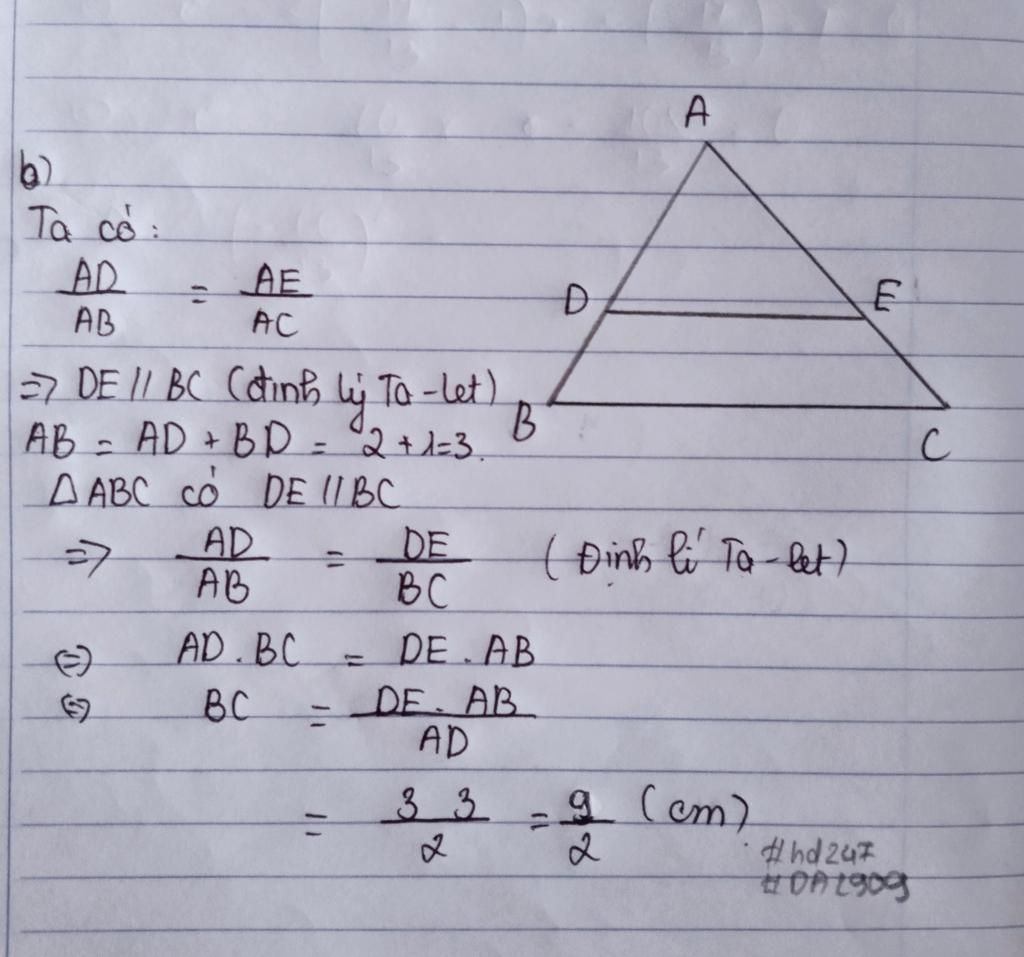 b)
Ta có:
AD/AB = AE/AC
=> DE // BC (định lý Ta-let)
AB = AD + BD = 2+1=3.
△ABC có DE // BC
=> AD/AB = DE/BC (Định lí Ta-let)
<=> AD.BC = DE.AB
<=> BC = DE.AB/AD
= 3 3/2 = 9/2 (cm)
#hd247
#DA2909
A
D
E
B
C